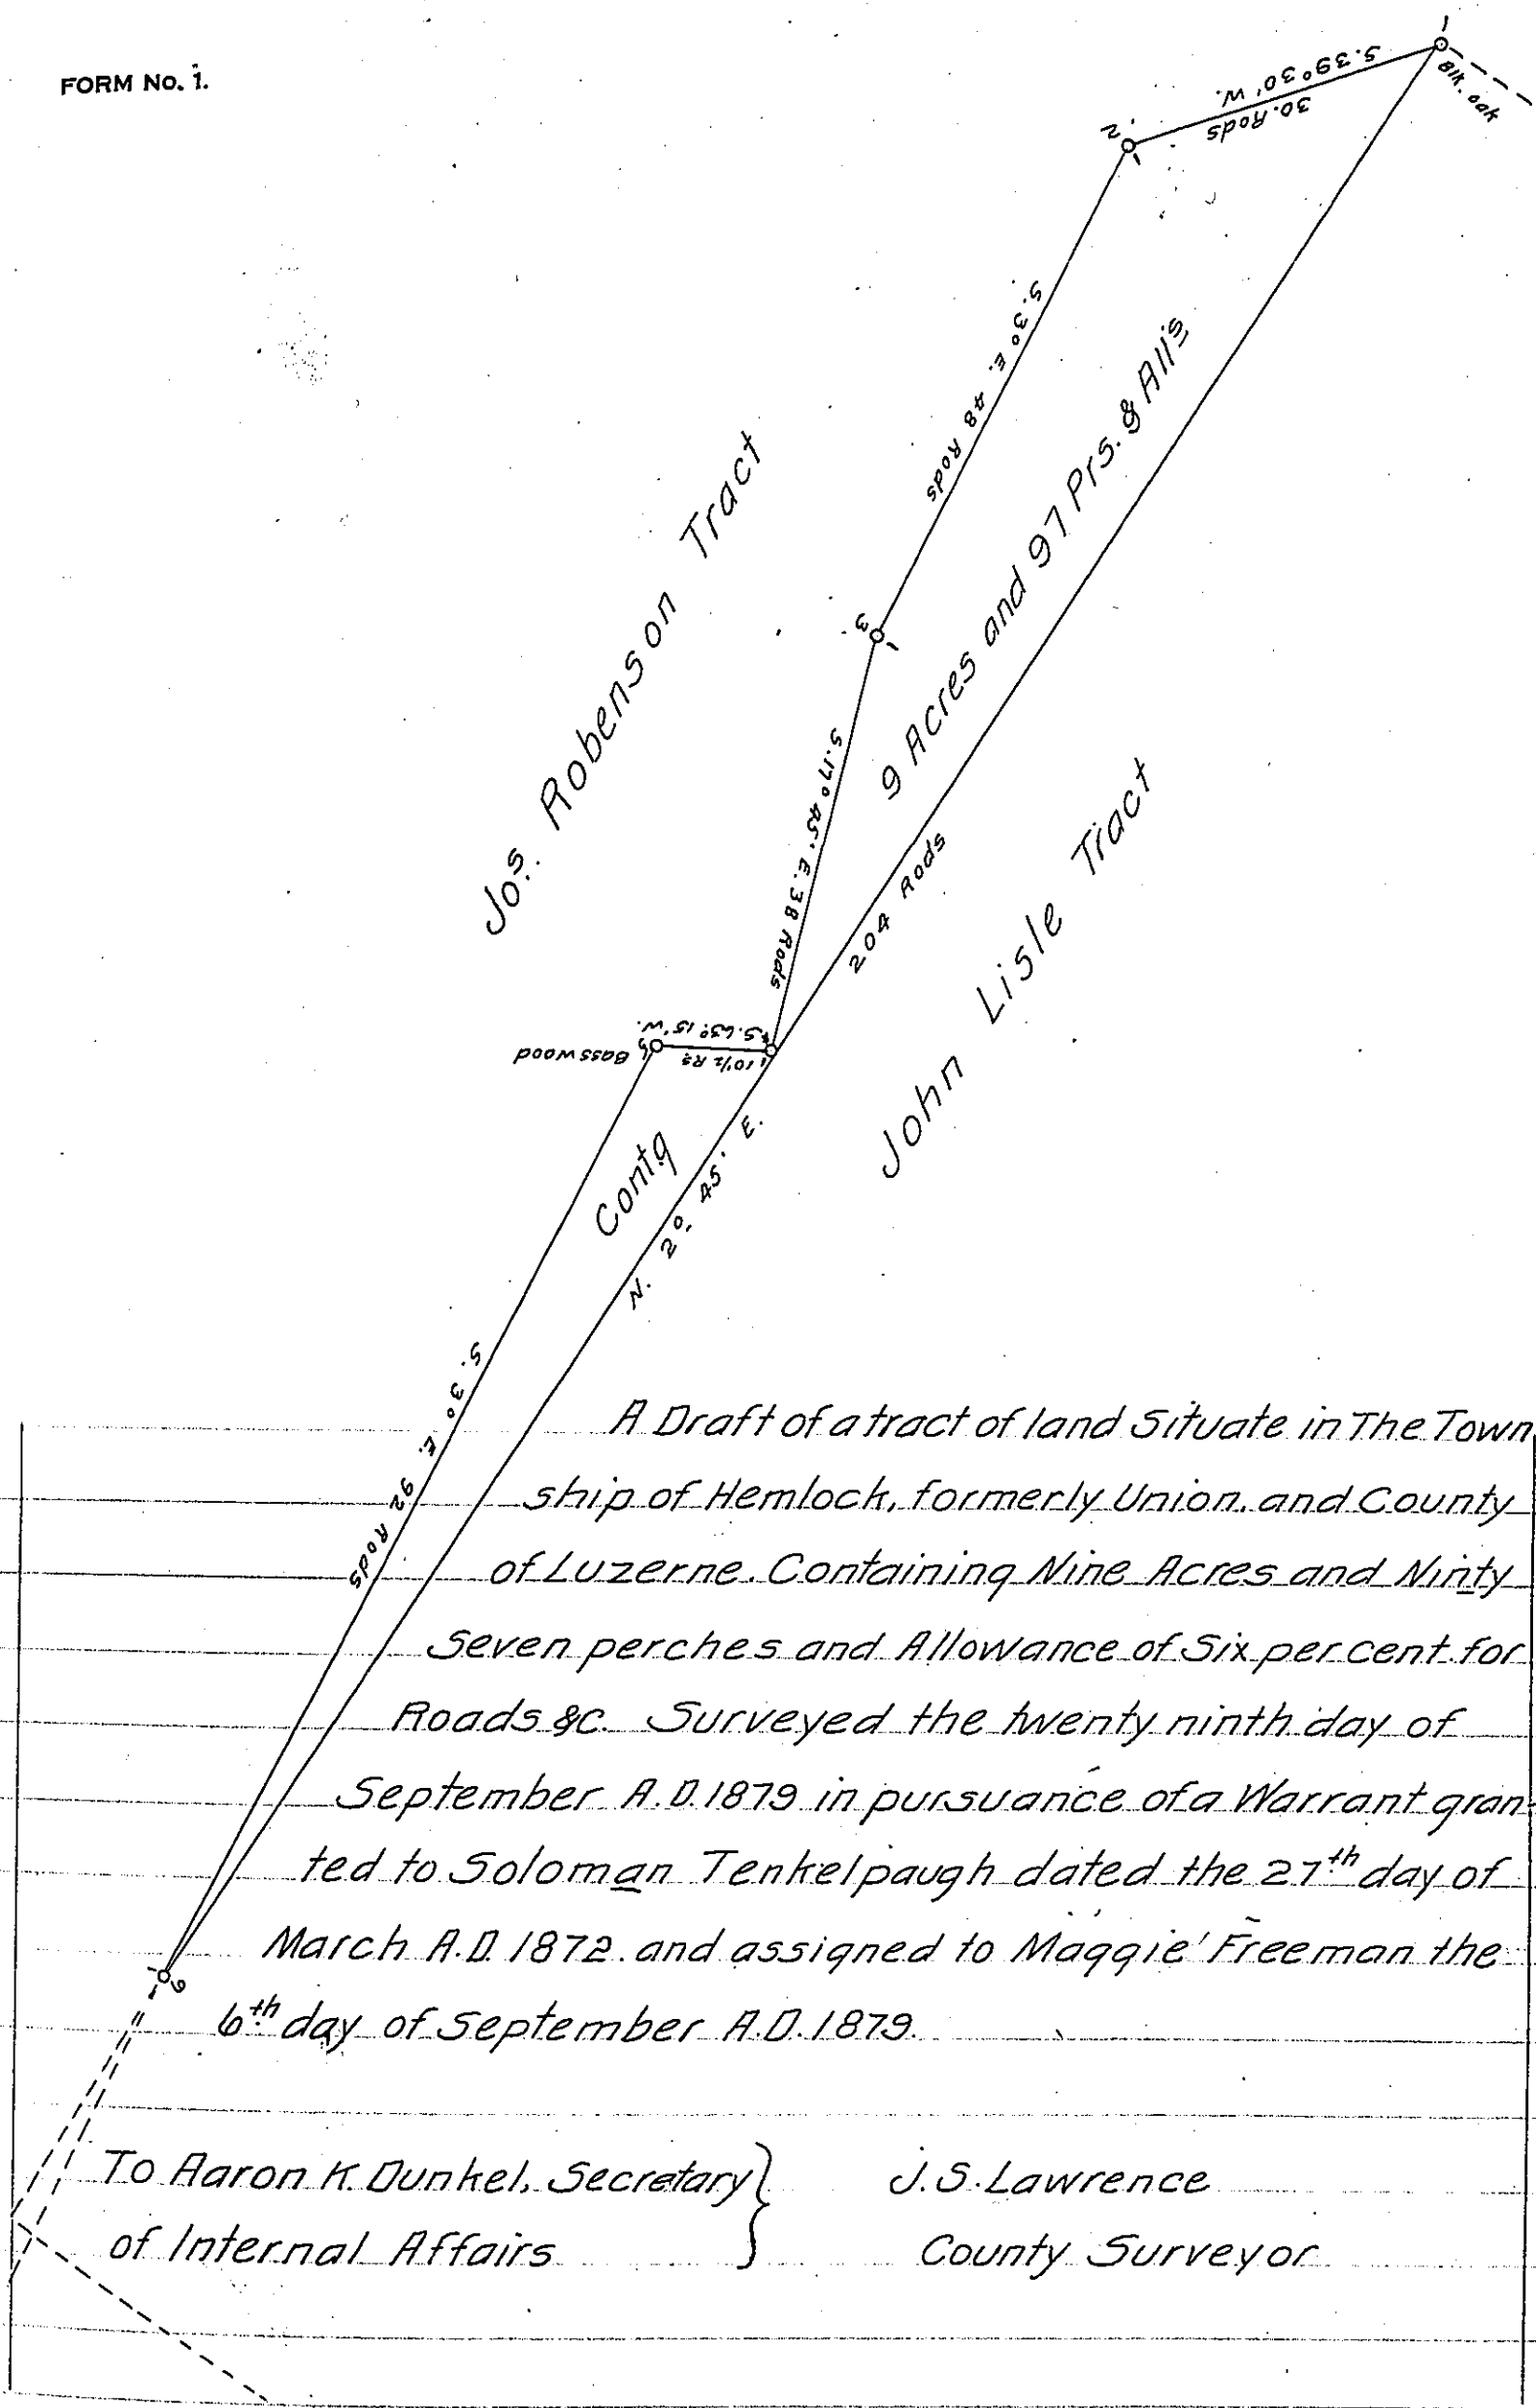 FORM No. 1.
1
Blk. oak
S. 39° 30' W.
30. Rods
2
1
S. 3° E. 48 Rods
3
1
Jos. Robenson Tract
9 Acres and 97 Prs. & Alls
S. 17° 45' E. 38 Rods
204 Rods
John Lisle Tract
S. 63° 15' W.
10½ Rs
Basswood
Contg
N. 2° 45' E.
S. 3° E. 92 Rods
A Draft of a tract of land Situate in The Town
ship of Hemlock, formerly Union, and County
of Luzerne. Containing Nine Acres and Ninty
Seven perches and Allowance of Six per cent. for
Roads &c. Surveyed the twenty ninth day of
September A.D. 1879 in pursuance of a Warrant gran-
ted to Soloman Tenkelpaugh dated the 27th day of
March A.D. 1872. and assigned to Maggie Freeman the
6th day of September A.D. 1879.
6
To Aaron K. Dunkel, Secretary
of Internal Affairs
J. S. Lawrence
County Surveyor